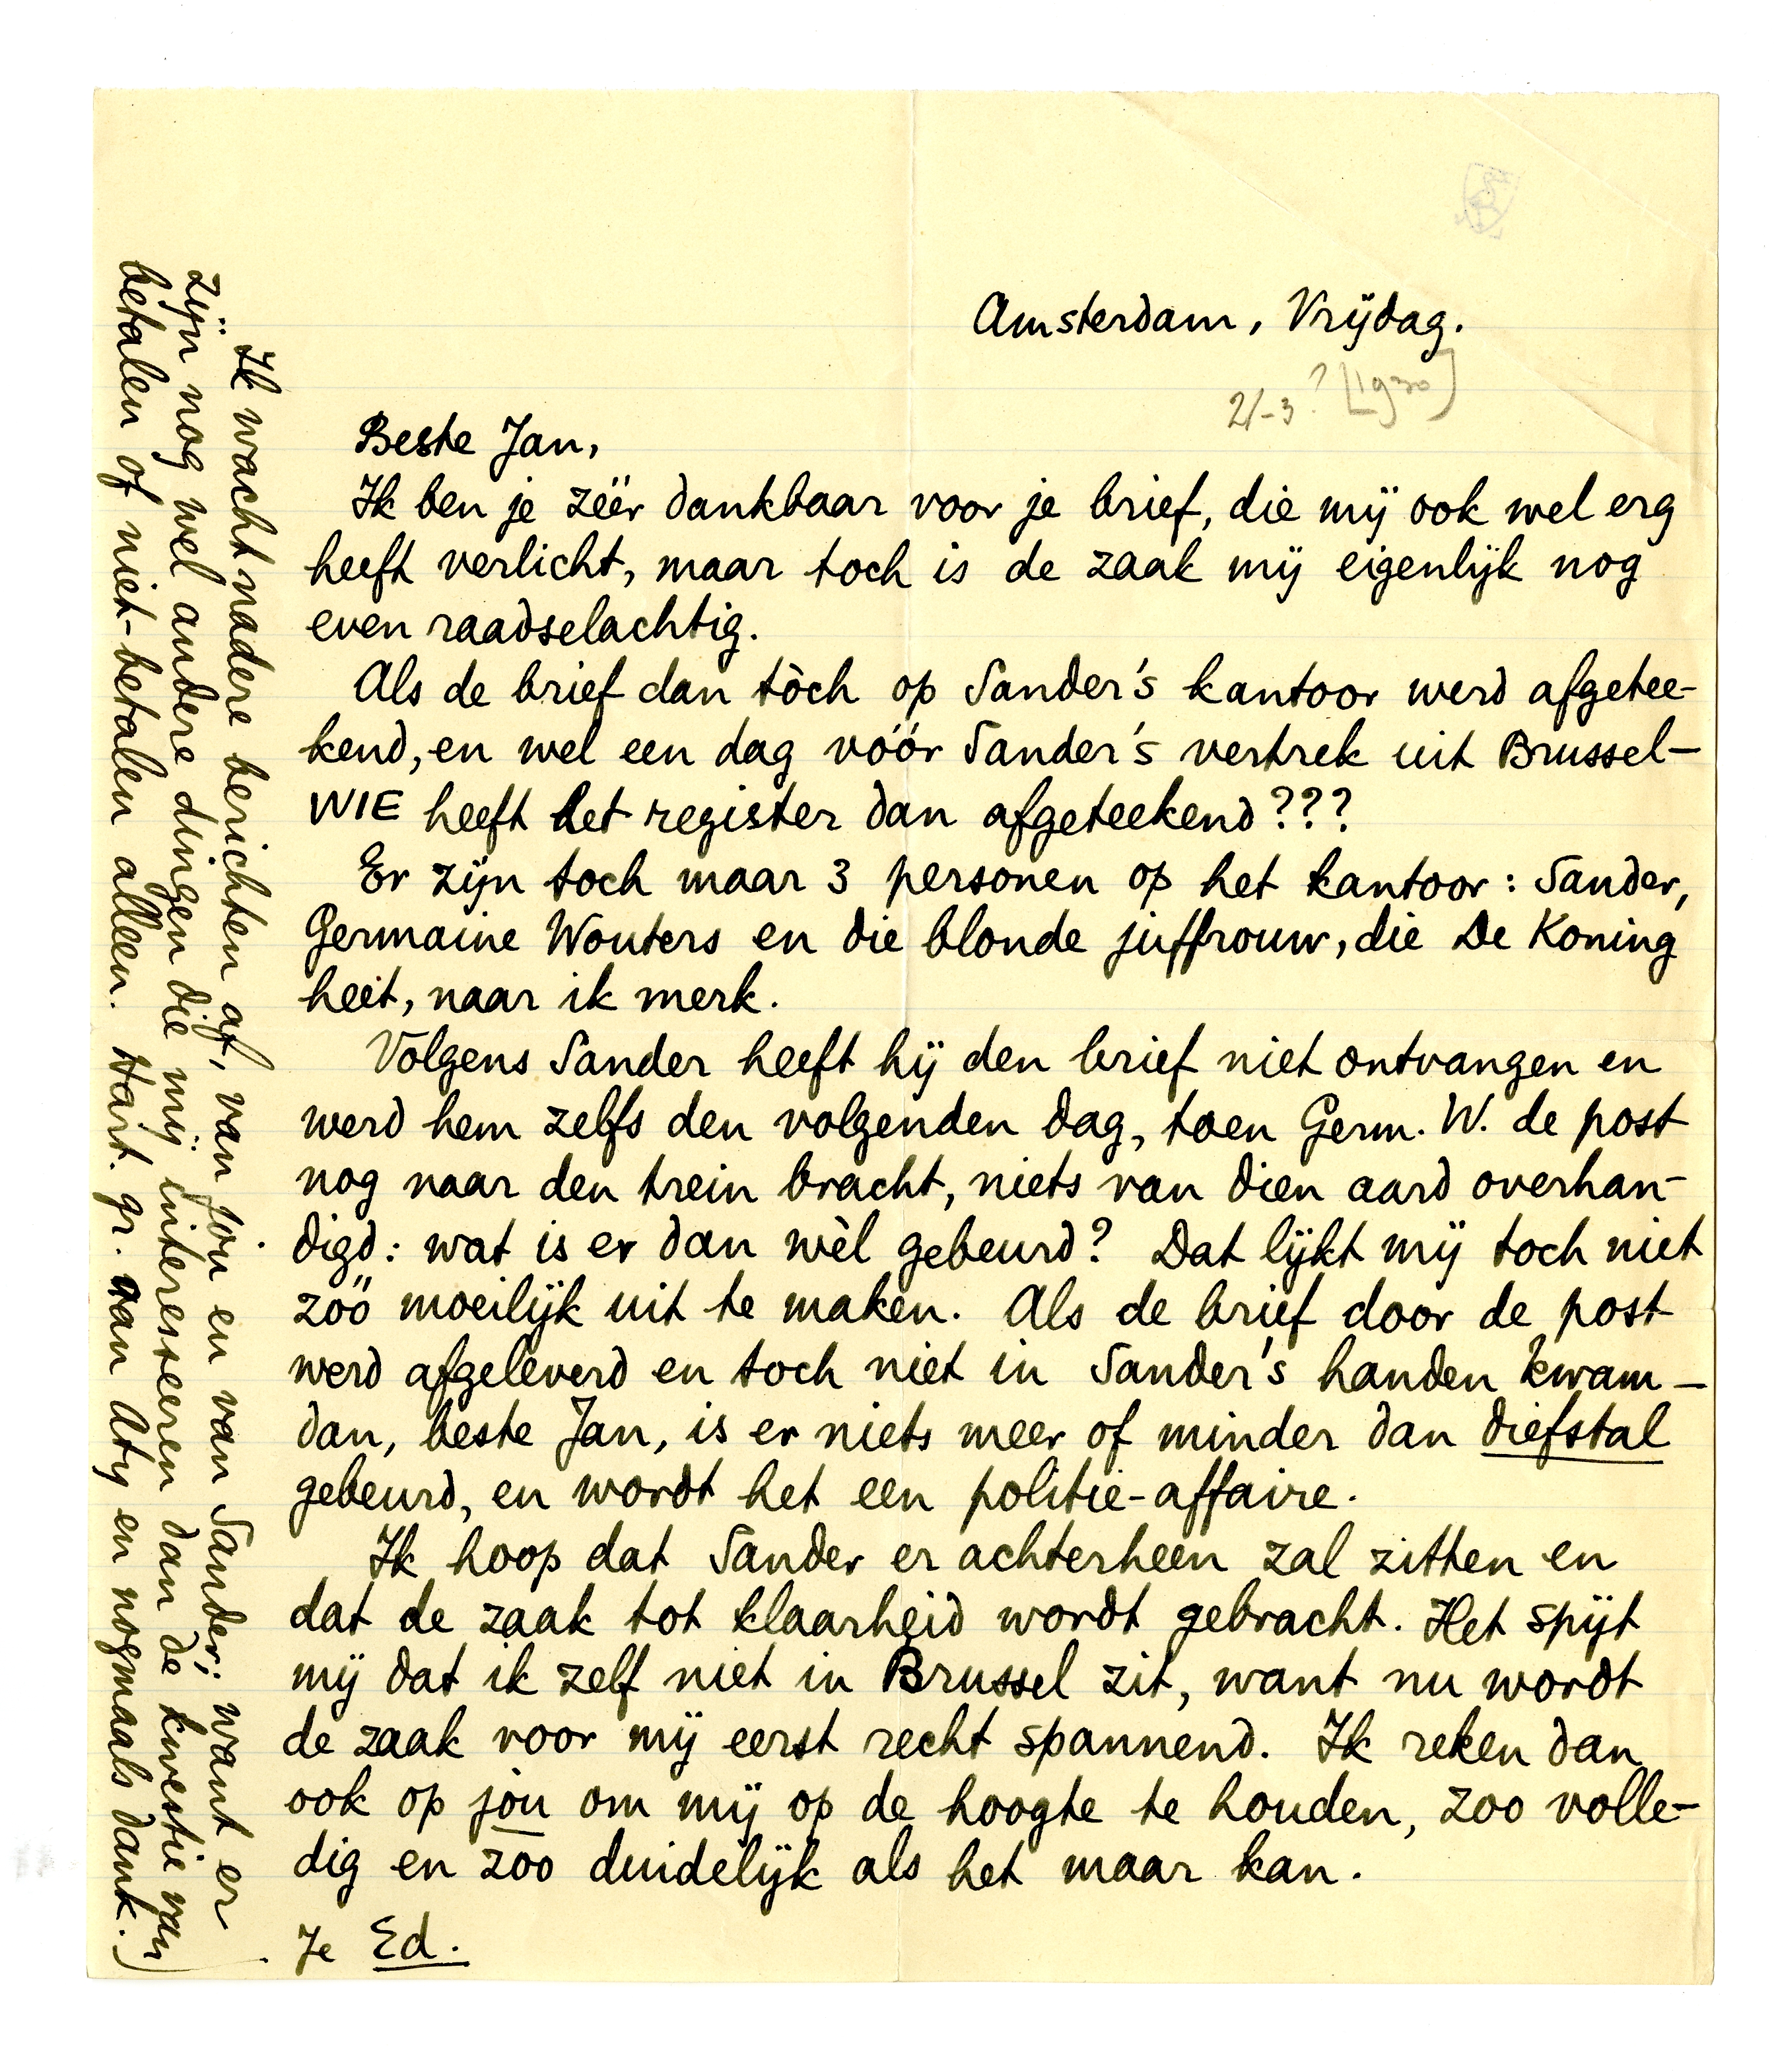 Amsterdam, Vrijdag.
21-3? [1930]
Beste Jan,
Ik ben je zéér dankbaar voor je brief, die mij ook wel erg
heeft verlicht, maar toch is de zaak mij eigenlijk nog
even raadselachtig.
Als de brief dan tòch op Sander's kantoor werd afgetee-
kend, en wel een dag vóór Sander's vertrek uit Brussel—
WIE heeft het register dan afgeteekend???
Er zijn toch maar 3 personen op het kantoor: Sander,
Germaine Wouters en die blonde juffrouw, die De Koning
heet, naar ik merk.
Volgens Sander heeft hij den brief niet ontvangen en
werd hem zelfs den volgenden dag, toen Germ. W. de post
nog naar den trein bracht, niets van dien aard overhan-
digd: wat is er dan wèl gebeurd? Dat lijkt mij toch niet
zóó moeilijk uit te maken. Als de brief door de post
werd afgeleverd en toch niet in Sander's handen kwam—
dan, beste Jan, is er niets meer of minder dan diefstal
gebeurd, en wordt het een politie-affaire.
Ik hoop dat Sander er achterheen zal zitten en
dat de zaak tot klaarheid wordt gebracht. Het spijt
mij dat ik zelf niet in Brussel zit, want nu wordt
de zaak voor mij eerst recht spannend. Ik reken dan
ook op jou om mij op de hoogte te houden, zoo volle-
dig en zoo duidelijk als het maar kan.
Je Ed.
Ik wacht nadere berichten af, van jou en van Sander; want er
zijn nog wel andere dingen die mij interesseeren dan de kwestie van
betalen of niet-betalen alleen. Hart. gr. aan Aty en nogmaals dank.)